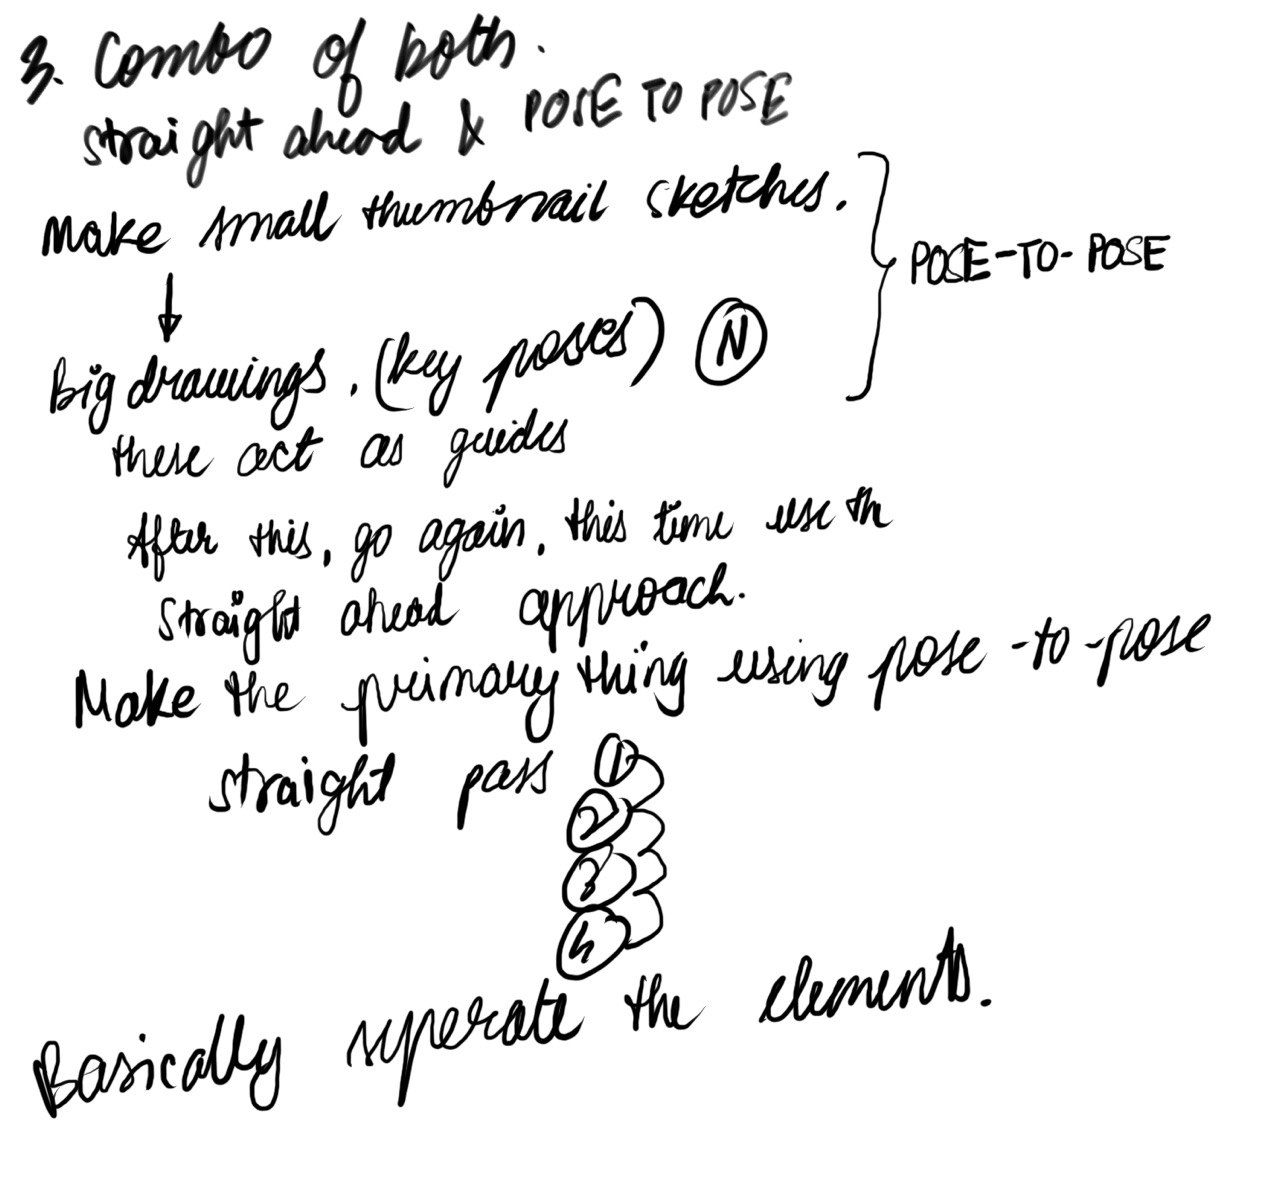 3. Combo of both.
straight ahead & POSE TO POSE
Make small thumbnail sketches.
POSE-TO-POSE
↓
Big drawings. (key poses) N
these act as guides
After this, go again, this time use th
straight ahead approach.
Make the primary thing using pose-to-pose
straight pass 1
2
3
4
Basically seperate the elements.